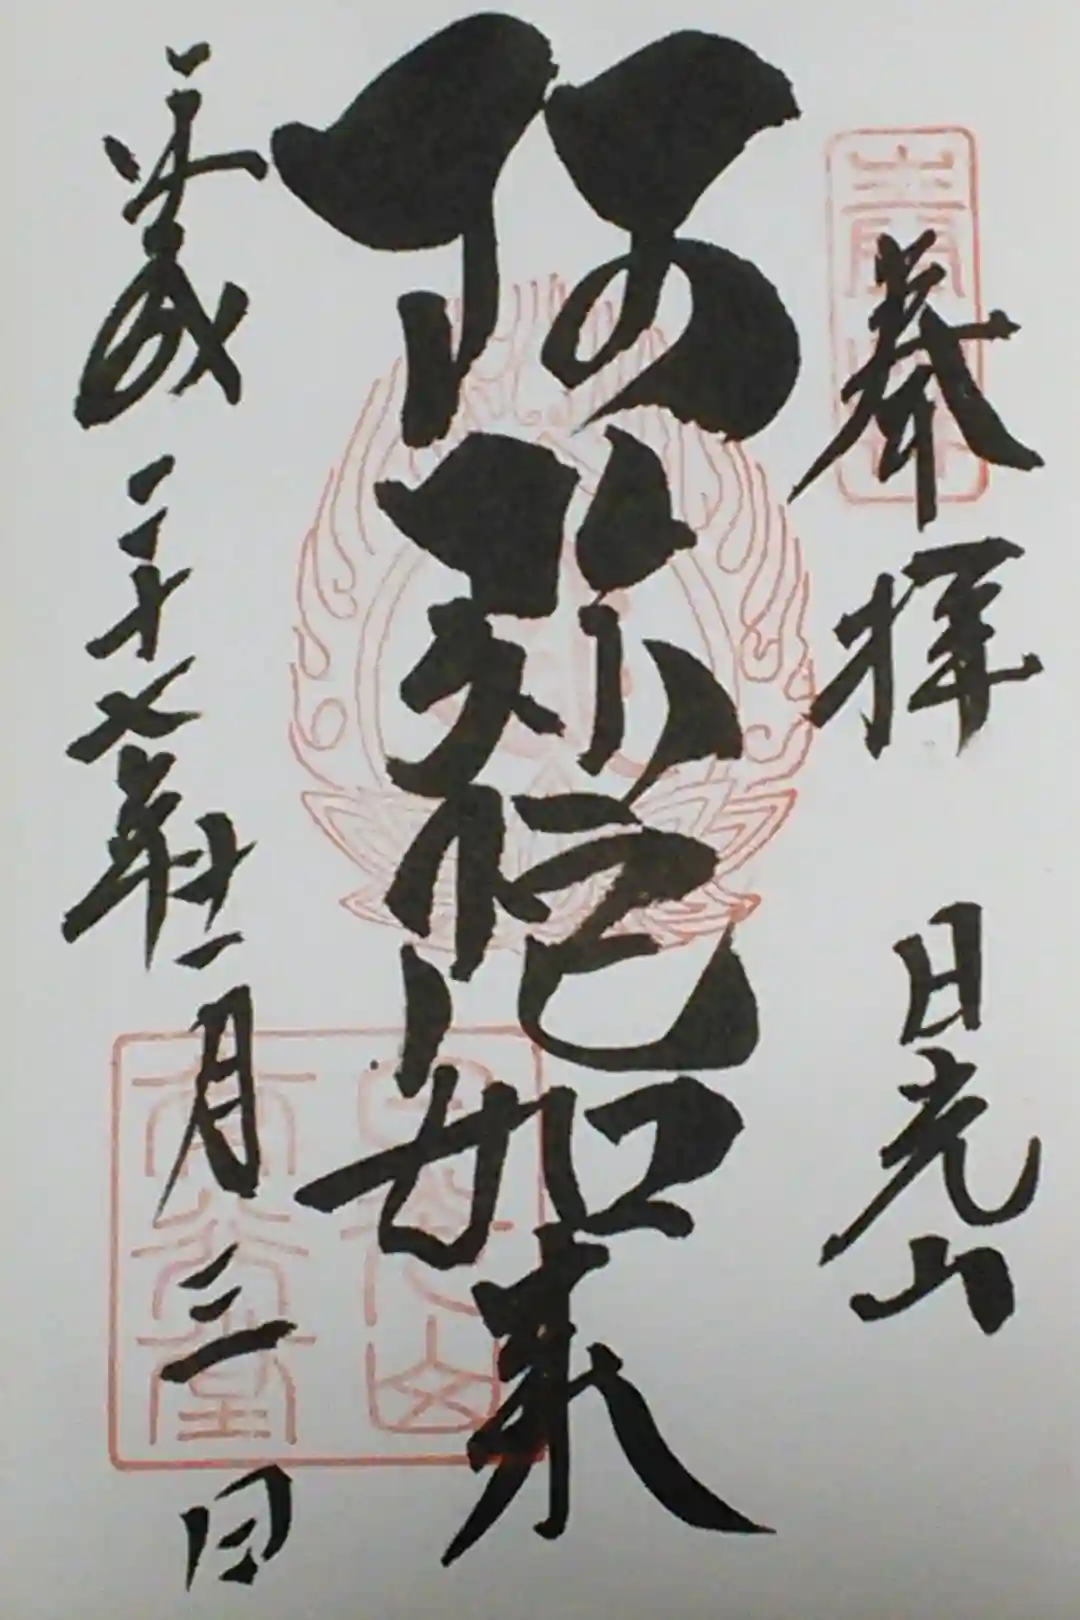 奉拝 日光山
阿弥陀如来
平成二十七年十一月三日